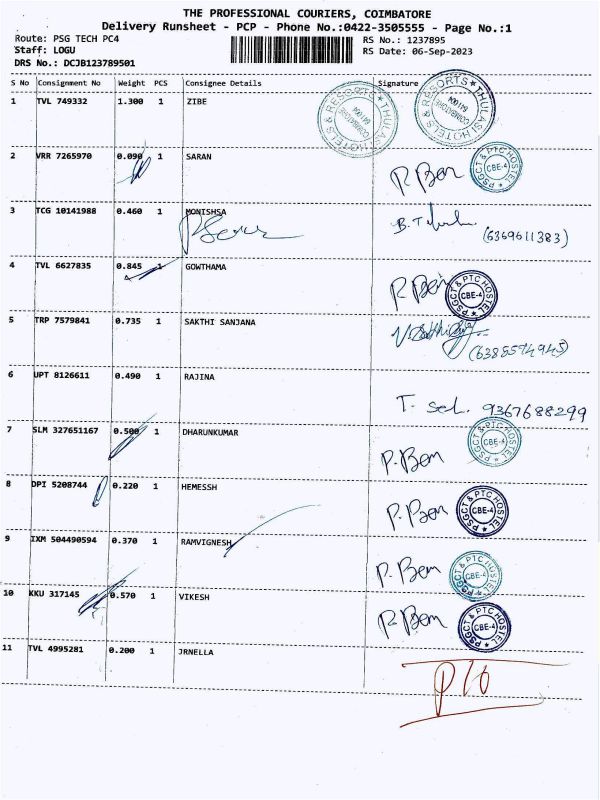 THE PROFESSIONAL COURIERS, COIMBATORE
Delivery Runsheet - PCP - Phone No.:0422-3505555 - Page No.:1
Route: PSG TECH PC4 RS No.: 1237895
Staff: LOGU RS Date: 06-Sep-2023
DRS No.: DCJB123789501
S No Consignment No Weight PCS Consignee Details Signature
1 TVL 749332 1.300 1 ZIBE
THULASI HOTELS & RESORTS COIMBATORE 641 004
THULASI HOTELS & RESORTS COIMBATORE 641 004
2 VRR 7265970 0.090 1 SARAN P. Bem
PSGCT & PTC HOSTEL CBE-4
3 TCG 10141988 0.460 1 MONISHSA
(6369611383)
4 TVL 6627835 0.845 1 GOWTHAMA P. Bem
PSGCT & PTC HOSTEL CBE-4
5 TRP 7579841 0.735 1 SAKTHI SANJANA
(6385574945)
6 UPT 8126611 0.490 1 RAJINA
T. sel. 9367688299
7 SLM 327651167 0.500 1 DHARUNKUMAR P. Bem
PSGCT & PTC HOSTEL CBE-4
8 DPI 5208744 0.220 1 HEMESSH P. Bem
PSGCT & PTC HOSTEL CBE-4
9 IXM 504490594 0.370 1 RAMVIGNESH P. Bem
PSGCT & PTC HOSTEL CBE-4
10 KKU 317145 0.570 1 VIKESH P. Bem
PSGCT & PTC HOSTEL CBE-4
11 TVL 4995281 0.200 1 JRNELLA